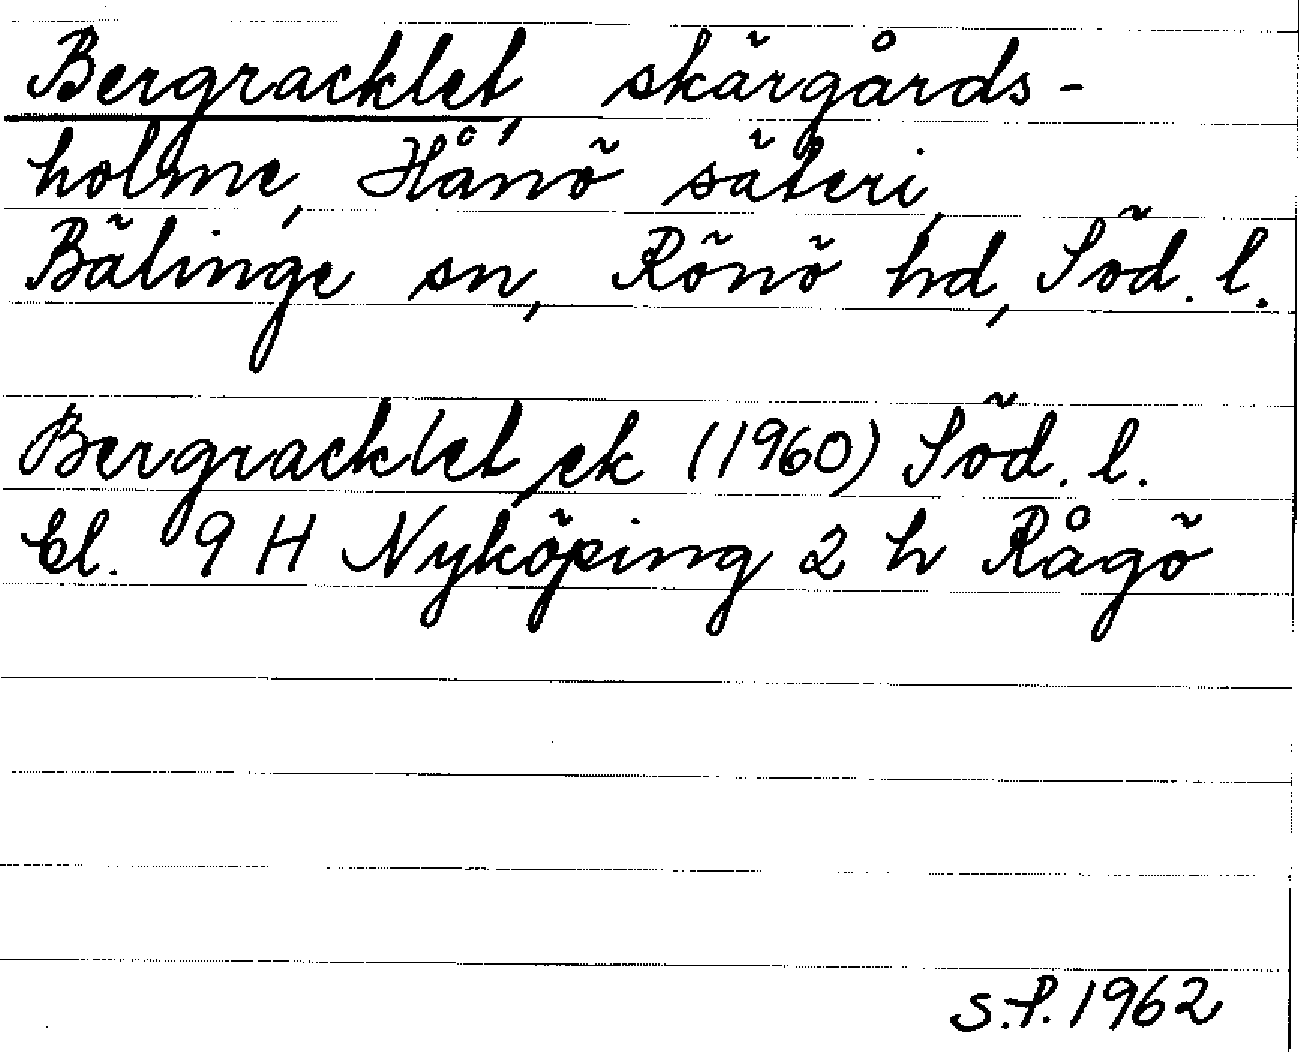 Bergracklet, skärgårds-
holme, Hånö säteri,
Bälinge sn, Rönö hd, Söd. l.
Bergracklet, ek (1960) Söd. l.
bl. 9 H Nyköping 2 h Rågö
S.P. 1962